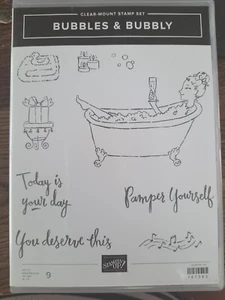 CLEAR-MOUNT STAMP SET
BUBBLES & BUBBLY
Today is
your day
Pamper Yourself
You deserve this
STAMPIN' UP!
9